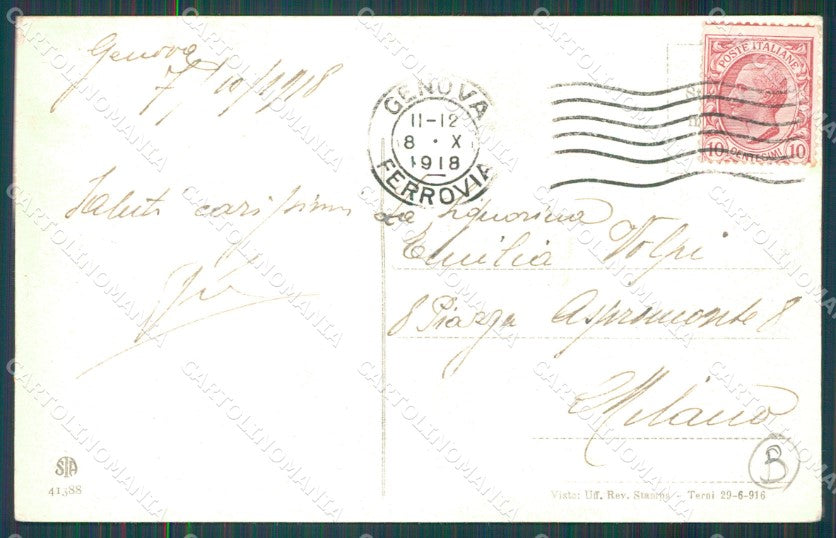 Genova
7/10/1918
GENOVA
11-12
8 · X
1918
FERROVIA
POSTE ITALIANE
10 CENTESIMI 10
Saluti carissimi
Signorina
Emilia Volpi
8 Piazza Aspromonte 8
Milano
B
STA
41388
Visto: Uff. Rev. Stampa - Terni 29-6-916
CARTOLINOMANIA